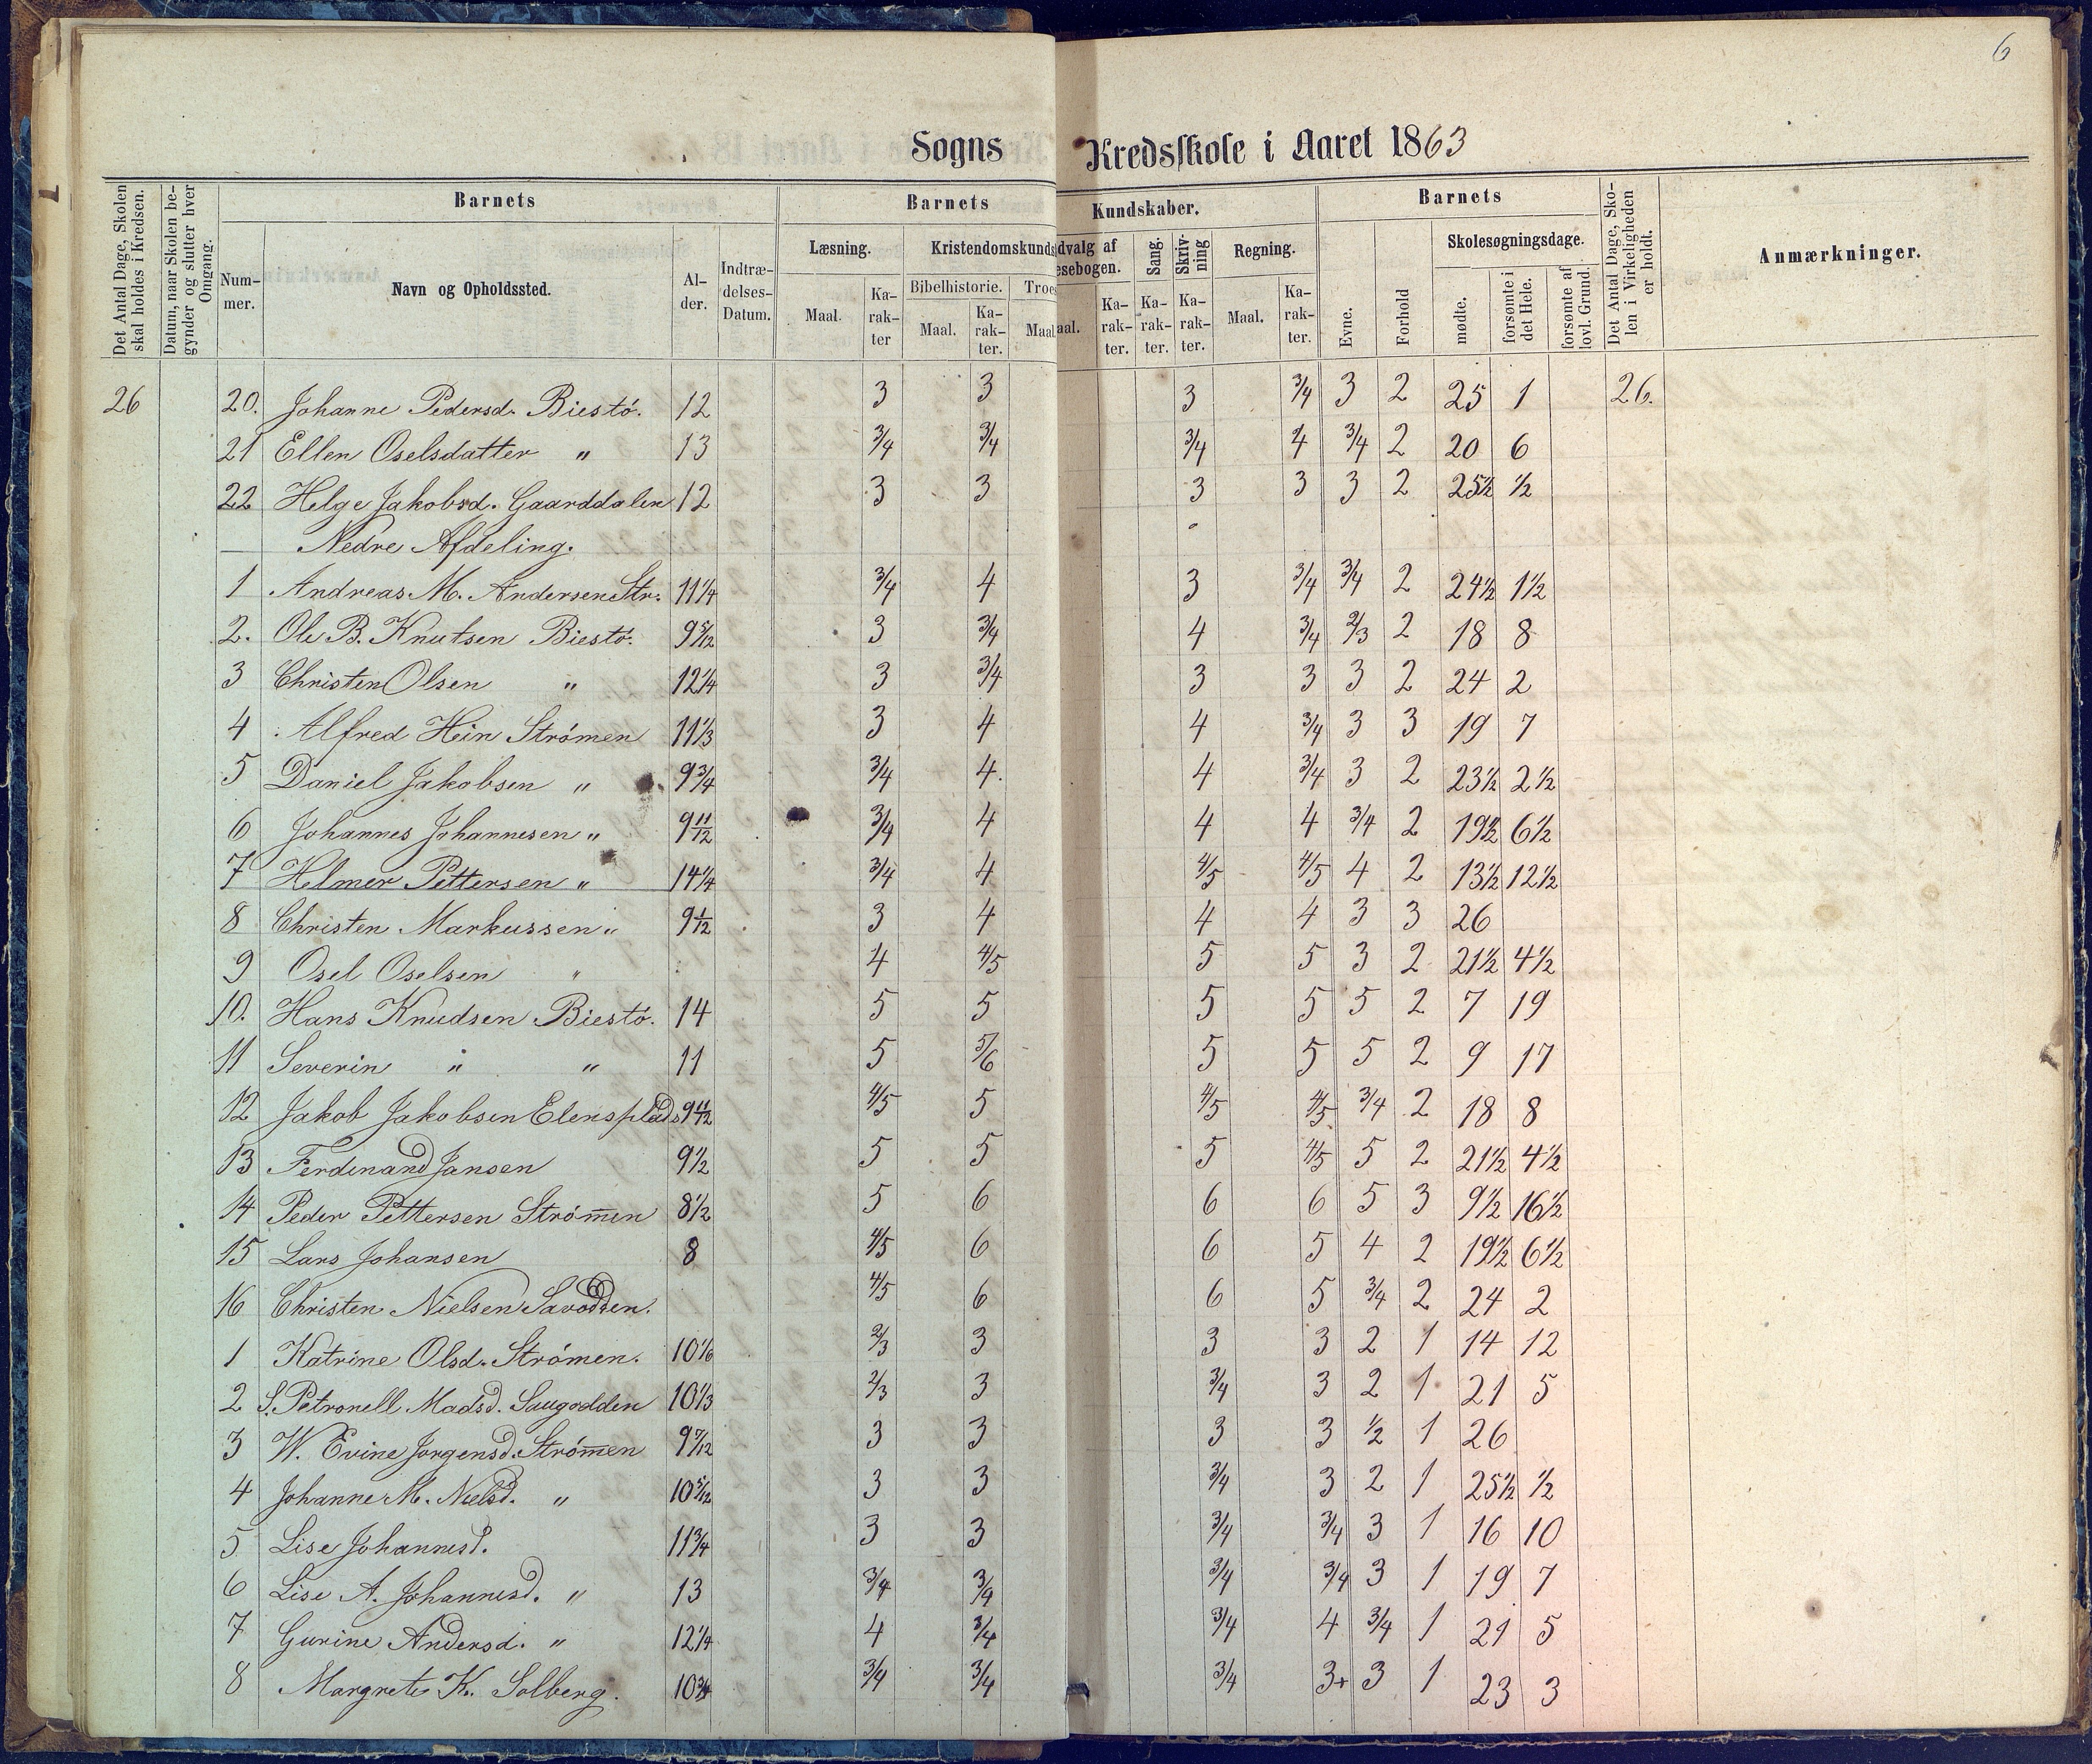 6
Sogns Kredsskole i Aaret 1863
Det Antal Dage, Skolen skal holdes i Kredsen.
Datum, naar Skolen begynder og slutter hver Omgang.
Barnets
Nummer.
Navn og Opholdssted.
Alder.
Indtrædelses-Datum.
Barnets
Læsning.
Maal.
Karakter
Kristendomskunds
Bibelhistorie.
Maal.
Karakter.
Troes
Maal
Kundskaber.
dvalg af
esebogen.
aal.
Karakter.
Sang.
Karakter.
Skrivning
Karakter.
Regning.
Maal.
Karakter.
Barnets
Evne.
Forhold
Skolesøgningsdage.
mødte.
forsømte i det Hele.
forsømte af lovl. Grund.
Det Antal Dage, Skolen i Virkeligheden er holdt.
Anmærkninger.
26 20. Johanne Pedersd. Biestø. 12 3 3 3 3/4 3 2 25 1 26.
21 Ellen Oselsdatter " 13 3/4 3/4 3/4 4 3/4 2 20 6
22 Helge Jakobsd. Gaarddalen 12 3 3 3 3 3 2 25½ ½
— Nedre Afdeling.
1 Andreas M. Andersen Str. 11¼ 3/4 4 3 3/4 3/4 2 24½ 1½
2. Ole B. Knutsen Biestø. 9 5/12 3 3/4 4 3/4 2/3 2 18 8
3 Christen Olsen " 12¼ 3 3/4 3 3 3 2 24 2
4 Alfred Hein Strømen 11⅓ 3 4 4 3/4 3 3 19 7
5 Daniel Jakobsen " 9¾ 3/4 4. 4 3/4 3 2 23½ 2½
6 Johannes Johannesen " 9 11/12 3/4 4 4 4 3/4 2 19½ 6½
7 Helmer Pettersen " 14¼ 3/4 4 4/5 4/5 4 2 13½ 12½
8 Christen Markussen " 9 1/12 3 4 4 4 3 3 26
9 Osel Oselsen " 4 4/5 5 5 3 2 21½ 4½
10. Hans Knudsen Biestø. 14 5 5 5 5 5 2 7 19
11 Severin " " 11 5 5/6 5 5 5 2 9 17
12 Jakob Jakobsen Elensplads 9 11/12 4/5 5 4/5 4/5 3/4 2 18 8
13 Ferdinand Jansen 9½ 5 5 5 4/5 5 2 21½ 4½
14 Peder Pettersen Strøm̅en 8½ 5 6 6 6 5 3 9½ 16½
15 Lars Johansen 8 4/5 6 6 5 4 2 19½ 6½
16 Christen Nielsen 4/5 6 6 5 3/4 2 24 2
1 Katrine Olsd. Strømen. 10 1/6 2/3 3 3 3 2 1 14 12
2 S. Petronell Madsd. Saugodden 10⅓ 2/3 3 3/4 3 2 1 21 5
3 W. Evine Jorgensd. Strøm̅en 9 7/12 3 3 3 3 ½ 1 26
4 Johanne M. Nielsd. " 10 5/12 3 3 3/4 3 2 1 25½ ½
5 Lise Johannesd. 11¾ 3 3 3/4 3/4 3 1 16 10
6 Lise A. Johannesd. " 13 3/4 3/4 3/4 3/4 3 1 19 7
7 Gurine Andersd. " 12¼ 4 3/4 3/4 4 3/4 1 21 5
8 Margrete K. Solberg. 10¾ 3/4 3/4 3/4 3+ 3 1 23 3